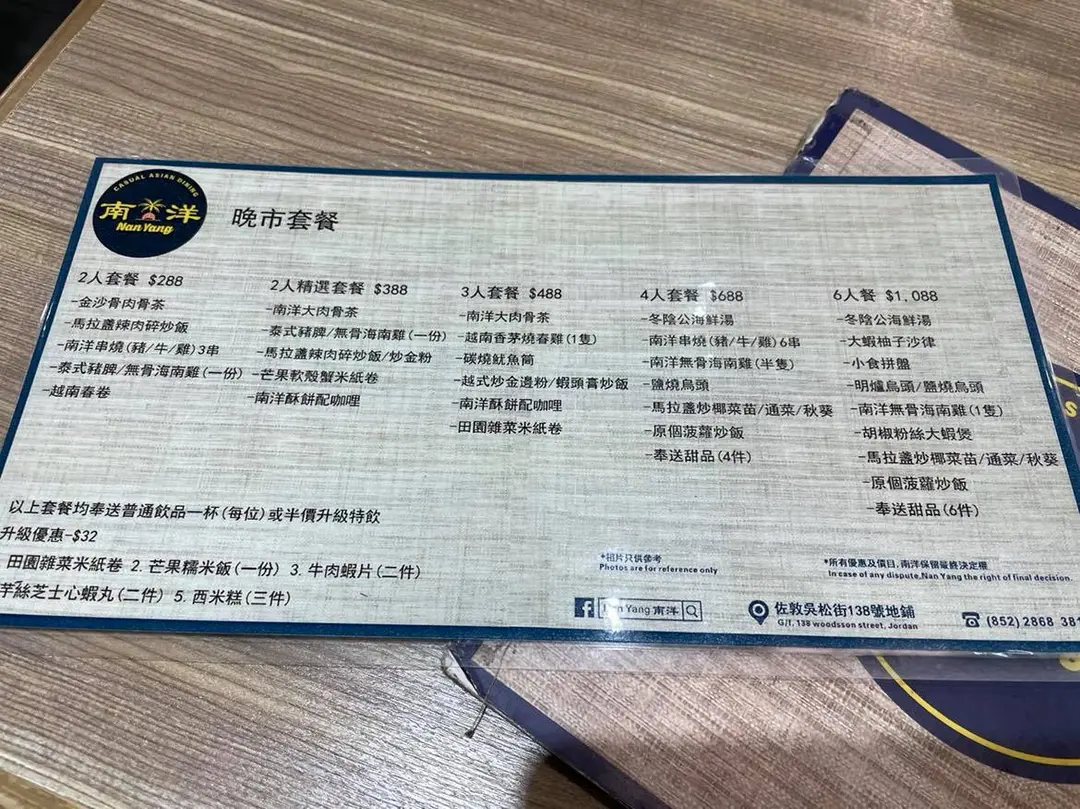 CASUAL ASIAN DINING
南洋
Nan Yang
晚市套餐
2人套餐 $288
-金沙骨肉骨茶
-馬拉盞辣肉碎炒飯
-南洋串燒(豬/牛/雞)3串
-泰式豬脾/無骨海南雞(一份)
-越南春卷
2人精選套餐 $388
-南洋大肉骨茶
-泰式豬脾/無骨海南雞(一份)
-馬拉盞辣肉碎炒飯/炒金粉
-芒果軟殼蟹米紙卷
-南洋酥餅配咖哩
3人套餐 $488
-南洋大肉骨茶
-越南香茅燒春雞(1隻)
-碳燒魷魚筒
-越式炒金邊粉/蝦頭膏炒飯
-南洋酥餅配咖哩
-田園雜菜米紙卷
4人套餐 $688
-冬陰公海鮮湯
-南洋串燒(豬/牛/雞)6串
-南洋無骨海南雞(半隻)
-鹽燒烏頭
-馬拉盞炒椰菜苗/通菜/秋葵
-原個菠蘿炒飯
-奉送甜品(4件)
6人餐 $1,088
-冬陰公海鮮湯
-大蝦柚子沙律
-小食拼盤
-明爐烏頭/鹽燒烏頭
-南洋無骨海南雞(1隻)
-胡椒粉絲大蝦煲
-馬拉盞炒椰菜苗/通菜/秋葵
-原個菠蘿炒飯
-奉送甜品(6件)
以上套餐均奉送普通飲品一杯(每位)或半價升級特飲
升級優惠-$32
田園雜菜米紙卷 2. 芒果糯米飯(一份) 3. 牛肉蝦片(二件)
芋絲芝士心蝦丸(二件) 5. 西米糕(三件)
*相片只供參考
Photos are for reference only
*所有優惠及價目,南洋保留最終決定權
In case of any dispute,Nan Yang the right of final decision.
Nan Yang 南洋
佐敦吳松街138號地鋪
G/f, 138 woodsson street, Jordan
(852) 2868 381